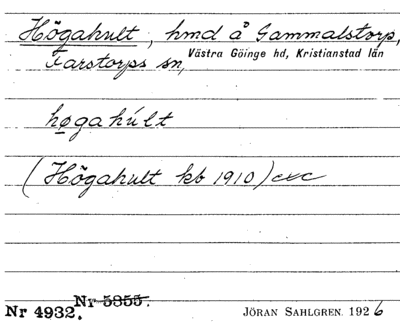 Högahult, hmd å Gammalstorp,
Farstorps sn, Västra Göinge hd, Kristianstad län
høgahúlt
(Högahult kb 1910) exc
Nr 4932. Nr 5855. JÖRAN SAHLGREN. 1926